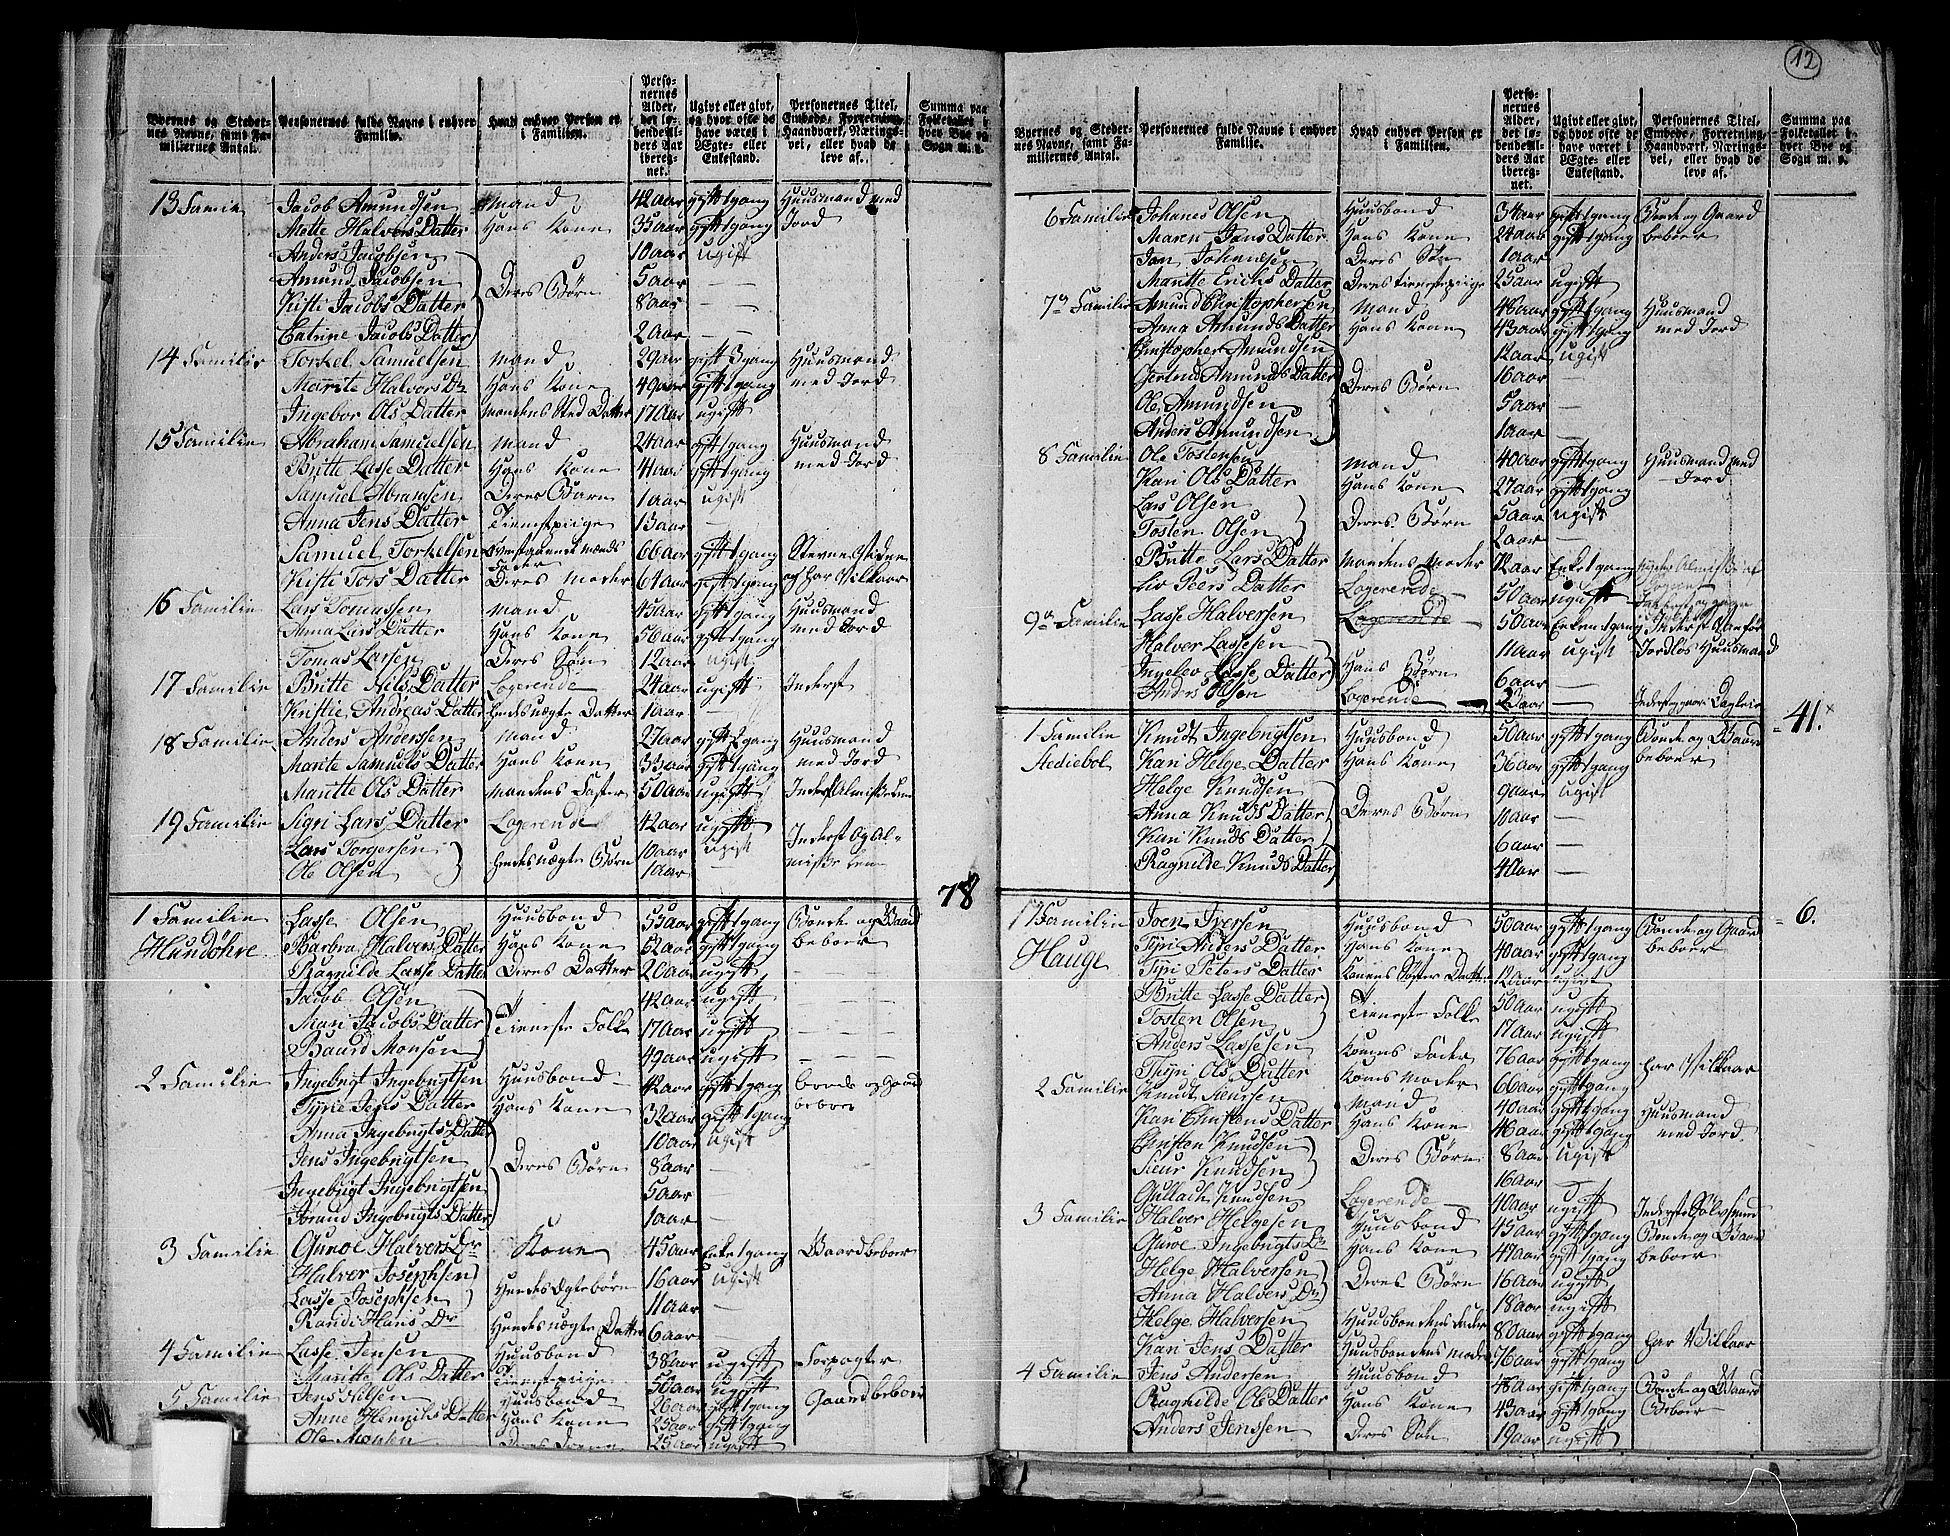 12
Byernes og Steder-
nes Navne, samt Fa-
miliernes Antal.
Personernes fulde Navne i enhver
Familie.
Hvad enhver Person er
i Familien.
Perso-
nernes
Alder,
det lø-
bende Al-
ders Aar
ibereg-
net.
Ugivt eller givt,
og hvor ofte de
have været i
Ægte- eller
Enkestand.
Personernes Titel,
Embede, Forretning,
Haandværk, Nærings-
vei, eller hvad de
leve af.
Summa paa
Folketallet i
hver Bye og
Sogn m. v.
13 Familie Jacob Amundsen Mand 42 aar gift 1 gang Huusmand med
Mette Halvers Datter Hans Kone 35 aar gift 1 gang Jord
Anders Jacobsen 10 aar ugift
Amund Jacobsen Deres Børn 5 aar —
Kisti Jacobs Datter 8 aar —
Catrine Jacobs Datter 2 aar —
14 Familie Torkel Samuelsen Mand 29 aar gift gang Huusmand
Maritte Halvers Dr Hans Kone 49 aar gift 1 gang med Jord
Ingebor Ols Datter Mandens Sted Datter 17 aar ugift
15 Familie Abraham Samuelsen Mand 24 aar gift 1 gang Huusmand
Britte Lasse Datter Hans Kone 41 aar gift 1 gang med Jord
Samuel Abramsen Deres Barn 1 aar ugift
Anna Jens Datter Tienestepiige 13 aar —
Samuel Torkelsen Mands Fader 66 aar gift 1 gang
Kisti Tors Datter Deres Moder 61 aar gift 1 gang og har Vilkaar
16 Familie Lars Tomassen Mand 45 aar gift 1 gang Huusmand
Anna Lars Datter Hans Kone 56 aar gift 1 gang med Jord
Tomas Larsen Deres Søn 12 aar ugift
17 Familie Britte Nils Datter Logerende 24 aar ugift Inderst
Kristie Andreas Datter Hendes uægte Datter 1 aar —
18 Familie Anders Andersen Mand 27 aar gift 1 gang Huusmand
Marite Samuels Datter Hans Kone 33 aar gift 1 gang med Jord
Maritte Ols Datter Mandens Faster 50 aar ugift Inderst Almisse Lem
19 Familie Sigri Lars Datter Logerende 42 aar ugift Inderst og Al-
Lars Torgersen Hendes uægte Børn 10 aar ugift misse Lem
Ole Olsen 1 aar
78
1 Familie Lasse Olsen Huusbond 55 aar gift 1 gang Bonde og Gaard
Mundöhre Barbra Halvers Datter Hans Kone 62 aar gift 1 gang beboer
Ragnilde Lasse Datter Deres Datter 20 aar ugift —
Jacob Olsen 42 aar ugift —
Mari Jacobs Datter Tieneste Folk 17 aar ugift —
Baard Monsen 49 aar ugift —
2 Familie Ingebrigt Ingebrigtsen Huusbond 42 aar gift 1 gang bonde og Gaard
Tyrie Jens Datter Hans Kone 32 aar gift 1 gang beboer
Anna Ingebrigts Datter 10 aar ugift
Jens Ingebrigtsen Deres Børn 8 aar —
Ingebrigt Ingebrigtsen 5 aar
Ingebrigts Datter 1 aar —
3 Familie Guroe Halvers Dr Kone 45 aar Enke 1 gang Gaardbeboer
Halver Josephsen Hendes Ægte børn 16 aar ugift
Lasse Josephsen 11 aar —
Randi Hans Dr Hendes uægte Datter 6 aar —
4 Familie Lasse Jensen Huusbond 38 aar ugift Forpagter
Maritte Ols Datter Tienestepiige 50 aar ugift
5 Familie Jens Nilsen Huusbond 26 aar gift 1 gang Gaardbeboer
Anne Henriks Datter Hans Kone 25 aar gift 1 gang
Ole Monsen Deres Dreng 25 aar ugift
Byernes og Steder-
nes Navne, samt Fa-
miliernes Antal.
Personernes fulde Navne i enhver
Familie.
Hvad enhver Person er
i Familien.
Perso-
nernes
Alder,
det lø-
bende Al-
ders Aar
ibereg-
net.
Ugivt eller givt,
og hvor ofte de
have været i
Ægte- eller
Enkestand.
Personernes Titel,
Embede, Forretning,
Haandværk, Nærings-
vei, eller hvad de
leve af.
Summa paa
Folketallet i
hver Bye og
Sogn m. v.
6 Familie Johanes Olsen Huusbond 34 aar gift 1 gang Bonde og Gaard
Maren Jans Datter Hans Kone 24 aar gift 1 gang beboer
Jan Johansen Deres Søn 1 aar
Maritte Erichs Datter Deres tienestepiige 25 aar ugift
7de Familie Amund Christophersen Mand 48 aar gift 1 gang Huusmand
Anna Amunds Datter Hans Kone 43 aar gift 1 gang med Jord
Christopher Amundsen 12 aar ugift
Gertrud Amunds Datter Deres Børn 16 aar —
Ole Amundsen 5 aar —
Anders Amundsen 1 aar —
8 Familie Ole Tostensen Mand 40 aar gift 1 gang Huusmand med
Kari Ols Datter Hans Kone 27 aar gift 1 gang Jord
Lars Olsen Deres Børn 5 aar ugift
Tosten Olsen 2 aar —
Britte Lars Datter Mandens Moder 72 aar Enke 1 gang
Liv Peers Datter Logerende 50 aar ugift
9de Familie Lasse Halversen Logerende 50 aar Enkem 1 gang
Halver Lassesen Hans Børn 11 aar ugift Jordløs Huusmand
Ingebor Lasse Datter 6 aar —
Anders Olsen Logerende aar —
41.
1 Familie Knudt Ingebrigtsen Huusbond 50 aar gift 1 gang Bonde og Gaard
Stediebol Kari Helge Datter Hans Kone 36 aar gift 1 gang beboer
Helge Knudsen 9 aar ugift
Anna Knuds Datter Deres Børn 11 aar —
Kari Knuds Datter 6 aar —
Ragnilde Knuds Datter 4 aar —
6.
1 Familie Iven Iversen Huusbond 50 aar gift 1 gang Bonde og Gaard
Hauge Tyri Anders Datter Hans Kone 40 aar gift 1 gang beboer
Tyri Peters Datter Konens Søster Datter 12 aar ugift
Britte Lasse Datter Tieneste Folk 50 aar ugift
Tosten Olsen 17 aar ugift
Anders Lassesen Konens Fader 76 aar gift 1 gang har Vilkaar
Thyri Ols Datter Konens Moder 66 aar gift 1 gang
2 Familie Knudt Siursen Mand 40 aar gift 1 gang Huusmand
Kari Christens Datter Hans Kone 46 aar gift 1 gang med Jord.
Christen Knudsen Deres Børn 8 aar ugift
Siur Knudsen 16 aar —
Gullach Knudsen Logerende 40 aar ugift
3 Familie Halver Helgesen Huusbond 45 aar gift 1 gang Bonde og Gaard
Guroe Ingebrigts Dr Hans Kone 47 aar gift 1 gang beboer
Helge Halversen Deres Børn 16 aar ugift
Anna Halvers Dr 18 aar ugift
Helge Halversen Huusbondens Fader 80 aar gift 1 gang har Vilkaar
Kari Jens Datter Huusbondens Moder 76 aar gift 1 gang
4 Familie Jens Andersen Huusbond 48 aar gift 1 gang Bonde og Gaard
Ragnilde Ols Datter Hans Kone 43 aar gift 1 gang beboer
Anders Jenssen Deres Søn 19 aar ugift